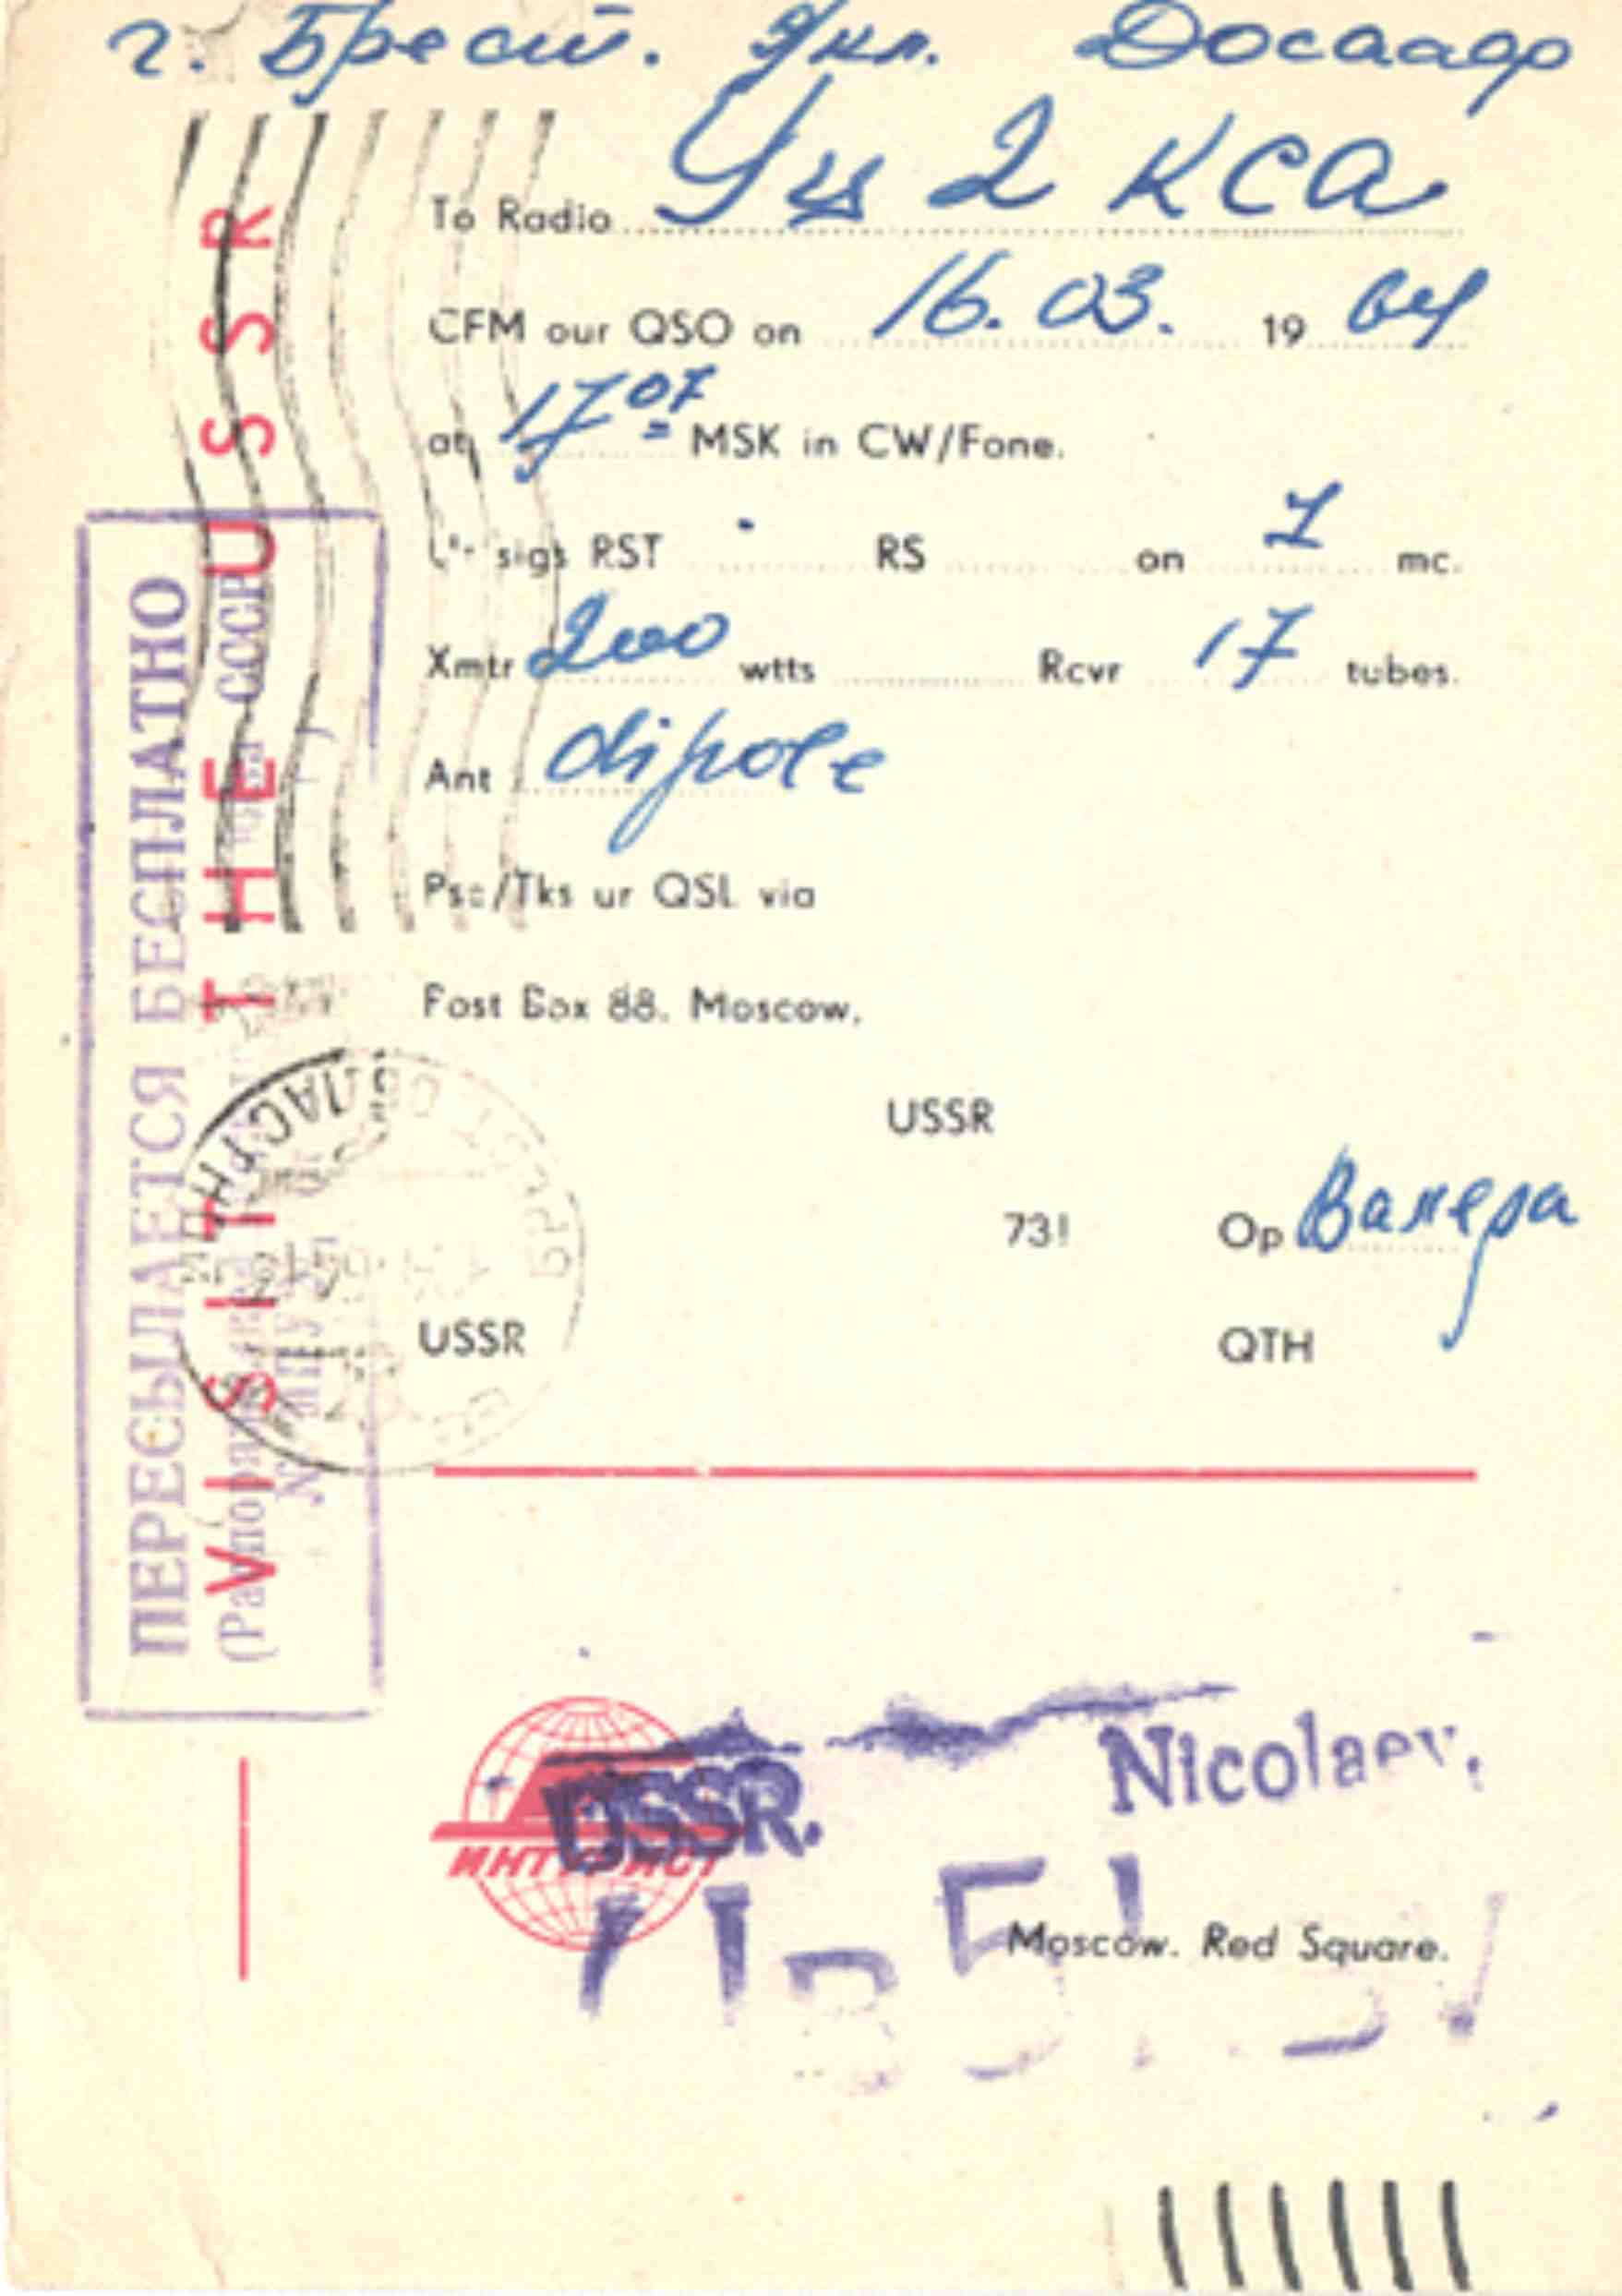 г. Брест. Укл. Досааф
To Radio Уц 2 КСА
CFM our QSO on 16.03. 19 64
at 17 07 MSK in CW/Fone.
sigs RST RS on 7 mc.
Xmtr 200 wtts Rcvr 17 tubes.
Ant dipole
Pse/Tks ur QSL via
Post Box 88. Moscow.
USSR
73! Op Валера
USSR QTH
VISIT THE USSR
ПЕРЕСЫЛАЕТСЯ БЕСПЛАТНО
СССР
USSR. Nicolaev.
ИНТУРИСТ
Moscow. Red Square.